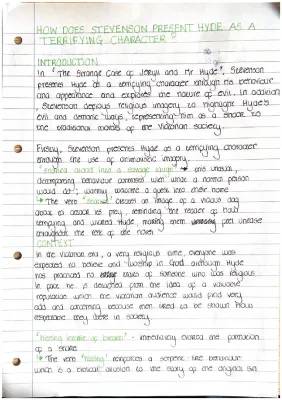 HOW DOES STEVENSON PRESENT HYDE AS A
TERRIFYING CHARACTER?
INTRODUCTION
In "The Strange Case of Jekyll and Mr Hyde", Stevenson
presents Hyde as a terrifying character through his behaviour
and appearance and explores the nature of evil. In addition
, Stevenson deploys religious imagery to highlight Hyde's
evil and demonic ways, representing him as a threat to
the traditional morals of the Victorian society.
Firstly, Stevenson presents Hyde as a terrifying character
through the use of animalistic imagery.
"snarled aloud into a savage laugh" → this unusual,
behaviour contrasted with what a normal person
would do; warmly welcome a guest into their home
↳ The verb "snarled" creates an image of a vicious dog
about to attack its prey, reminding the reader of how
terrifying and violent Hyde, making them feel unease
throughout the rest of the novel
CONTEXT
In the Victorian era, a very religious time, everyone was
expected to believe and worship in God although Hyde
has practiced no of someone who was religious
In fact he is detached from the idea of a valuable
reputation which the Victorian audience would find very
odd and concerning because men liked to be shown how
respectable they were in society.
"hissing intake of breath" - immediately evokes the
of a snake
↳ The verb "hissing" reinforces a serpent like behaviour
which is a biblical allusion to the story of the original sin